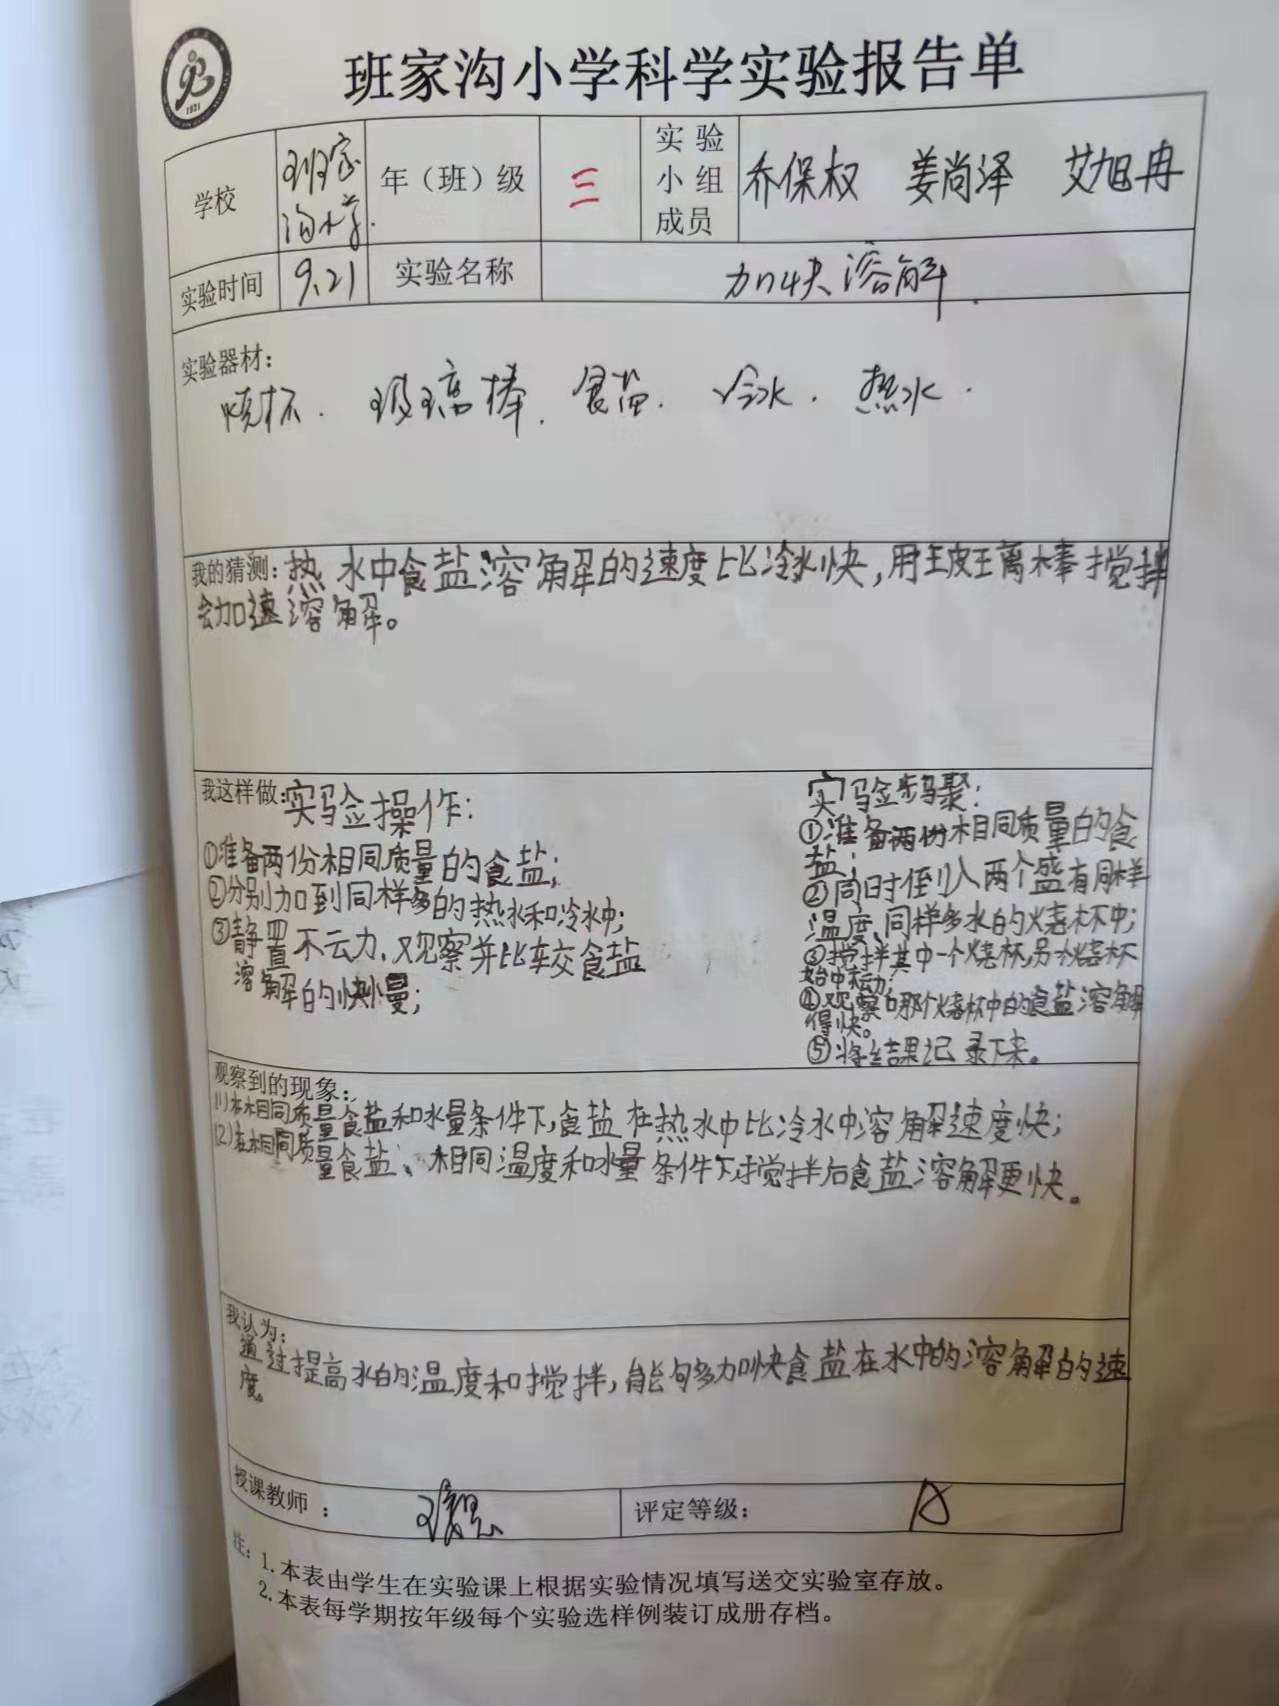 班家沟小学科学实验报告单
1931
学校
班家
沟小学.
年（班）级
三
实验
小组
成员
乔保权 姜尚泽 艾旭冉
实验时间
9.21
实验名称
加快溶解.
实验器材：
烧杯. 玻璃棒. 食盐. 冷水. 热水.
我的猜测：热水中食盐溶解的速度比冷水快，用玻璃棒搅拌
会加速溶解。
我这样做：实验操作：
①准备两份相同质量的食盐；
②分别加到同样多的热水和冷水中；
③静置不动，观察并比较食盐
溶解的快慢；
实验步骤：
①准备两份相同质量的食
盐；
②同时倒入两个盛有同样
温度、同样多水的烧杯中；
③搅拌其中一个烧杯，另一烧杯
始中不动；
④观察哪个烧杯中的食盐溶解
得快。
⑤将结果记录下来。
观察到的现象：
(1)在相同质量食盐和水量条件下，食盐在热水中比冷水中溶解速度快；
(2)在相同质量食盐、相同温度和水量条件下，搅拌后食盐溶解更快。
我认为：
通过提高水的温度和搅拌，能够多加快食盐在水中的溶解的速
度。
授课教师：
评定等级：
A
注：1.本表由学生在实验课上根据实验情况填写送交实验室存放。
2.本表每学期按年级每个实验选样例装订成册存档。